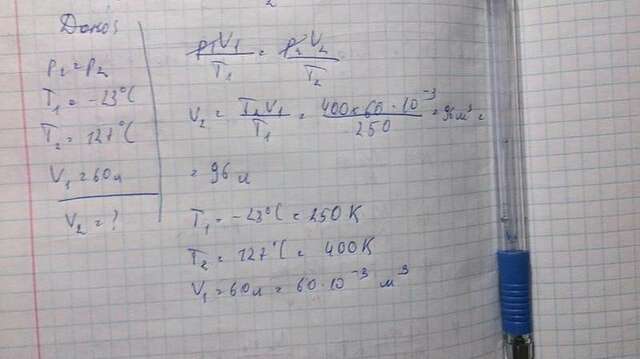 Дано:
p₁ = p₂
T₁ = -23°C
T₂ = 127°C
V₁ = 60л
V₂ = ?
p₁V₁/T₁ = p₂V₂/T₂
V₂ = T₂V₁/T₁ = 400×60·10⁻³/250 = м³ =
= 96 л
T₁ = -23°C = 250 K
T₂ = 127°C = 400 K
V₁ = 60л = 60·10⁻³ м³